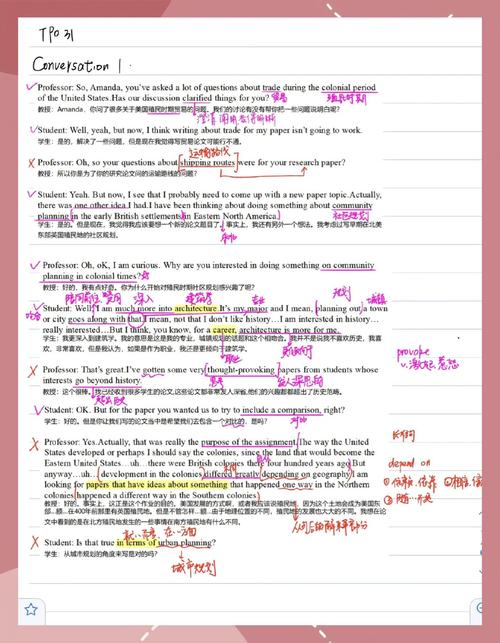 TPO 31
Conversation 1
Professor: So, Amanda, you've asked a lot of questions about trade during the colonial period
of the United States.Has our discussion clarified things for you? 贸易 殖民时期
教授:Amanda,你问了很多关于美国殖民时期贸易的问题。我们的讨论有没有帮你把一些问题说明白呢?
澄清 阐明
Student: Well, yeah, but now, I think writing about trade for my paper isn't going to work.
学生:是的,解决了一些问题,但是现在我觉得写贸易论文可能行不通。
运输路线
Professor: Oh, so your questions about shipping routes were for your research paper?
教授:所以你是为了你的研究论文问的运输路线的问题?
Student: Yeah. But now, I see that I probably need to come up with a new paper topic.Actually,
there was one other idea I had.I have been thinking about doing something about community
planning in the early British settlements in Eastern North America. 社区规划
学生:是的。但是现在,我觉得我应该要想一个新的论文题目了。事实上,我还有另外一个想法。我考虑过写早期在北美
东部英国殖民地的社区规划。
Professor: Oh, oK, I am curious. Why are you interested in doing something on community
planning in colonial times?
教授:哦,好的,我有点好奇。你为什么开始对殖民时期社区规划感兴趣了呢?
深入 建筑学 专业 规划 城镇
Student: Well, I am much more into architecture.It's my major and I mean, planning out a town
or city goes along with that. I mean, not that I don't like history…I am interested in history…
really interested…But I think, you know, for a career, architecture is more for me.
学生:我更深入到建筑学。我的意思是这是我的专业,城镇规划的话题和这个相吻合。我并不是说我不喜欢历史,我喜
欢,非常喜欢,但是我认为,如果是作为职业,我还是更倾向于建筑学。
职业
provoke
v.激起 惹怒
Professor: That's great.I've gotten some very thought-provoking papers from students whose
interests go beyond history. 发人深思的
教授:这个很棒。我已经收到很多学生的论文,这些论文都非常发人深省,他们的兴趣都超越出了历史范畴。
Student: OK. But for the paper you wanted us to try to include a comparison, right?
学生:好的。但是你让我们写的论文当中是希望我们去包含一个对比的,是吗? 对比
Professor: Yes.Actually, that was really the purpose of the assignment.The way the United
States developed or perhaps I should say the colonies, since the land that would become the
Eastern United States…uh…there were British colonies there four hundred years ago.But
anyway…uh…development in the colonies differed greatly depending on geography.I am
looking for papers that have ideas about something that happened one way in the Northern
colonies happened a different way in the Southern colonies
depend on
教授:好的。事实上,这正是这个作业的目的。美国发展的方式啊,或者我应该说殖民地,因为这个土地会成为美国东
部…额…在400年前那里有英国殖民地。但是不管怎样…额…由于地理位置的不同,殖民地的发展也大大的不同。我想在论
文中看到的是在北方殖民地发生的一些事情在南方殖民地有什么不同。
Student: Is that true in terms of urban planning?
学生:从城市规划的角度来写是对的吗?
城市规划